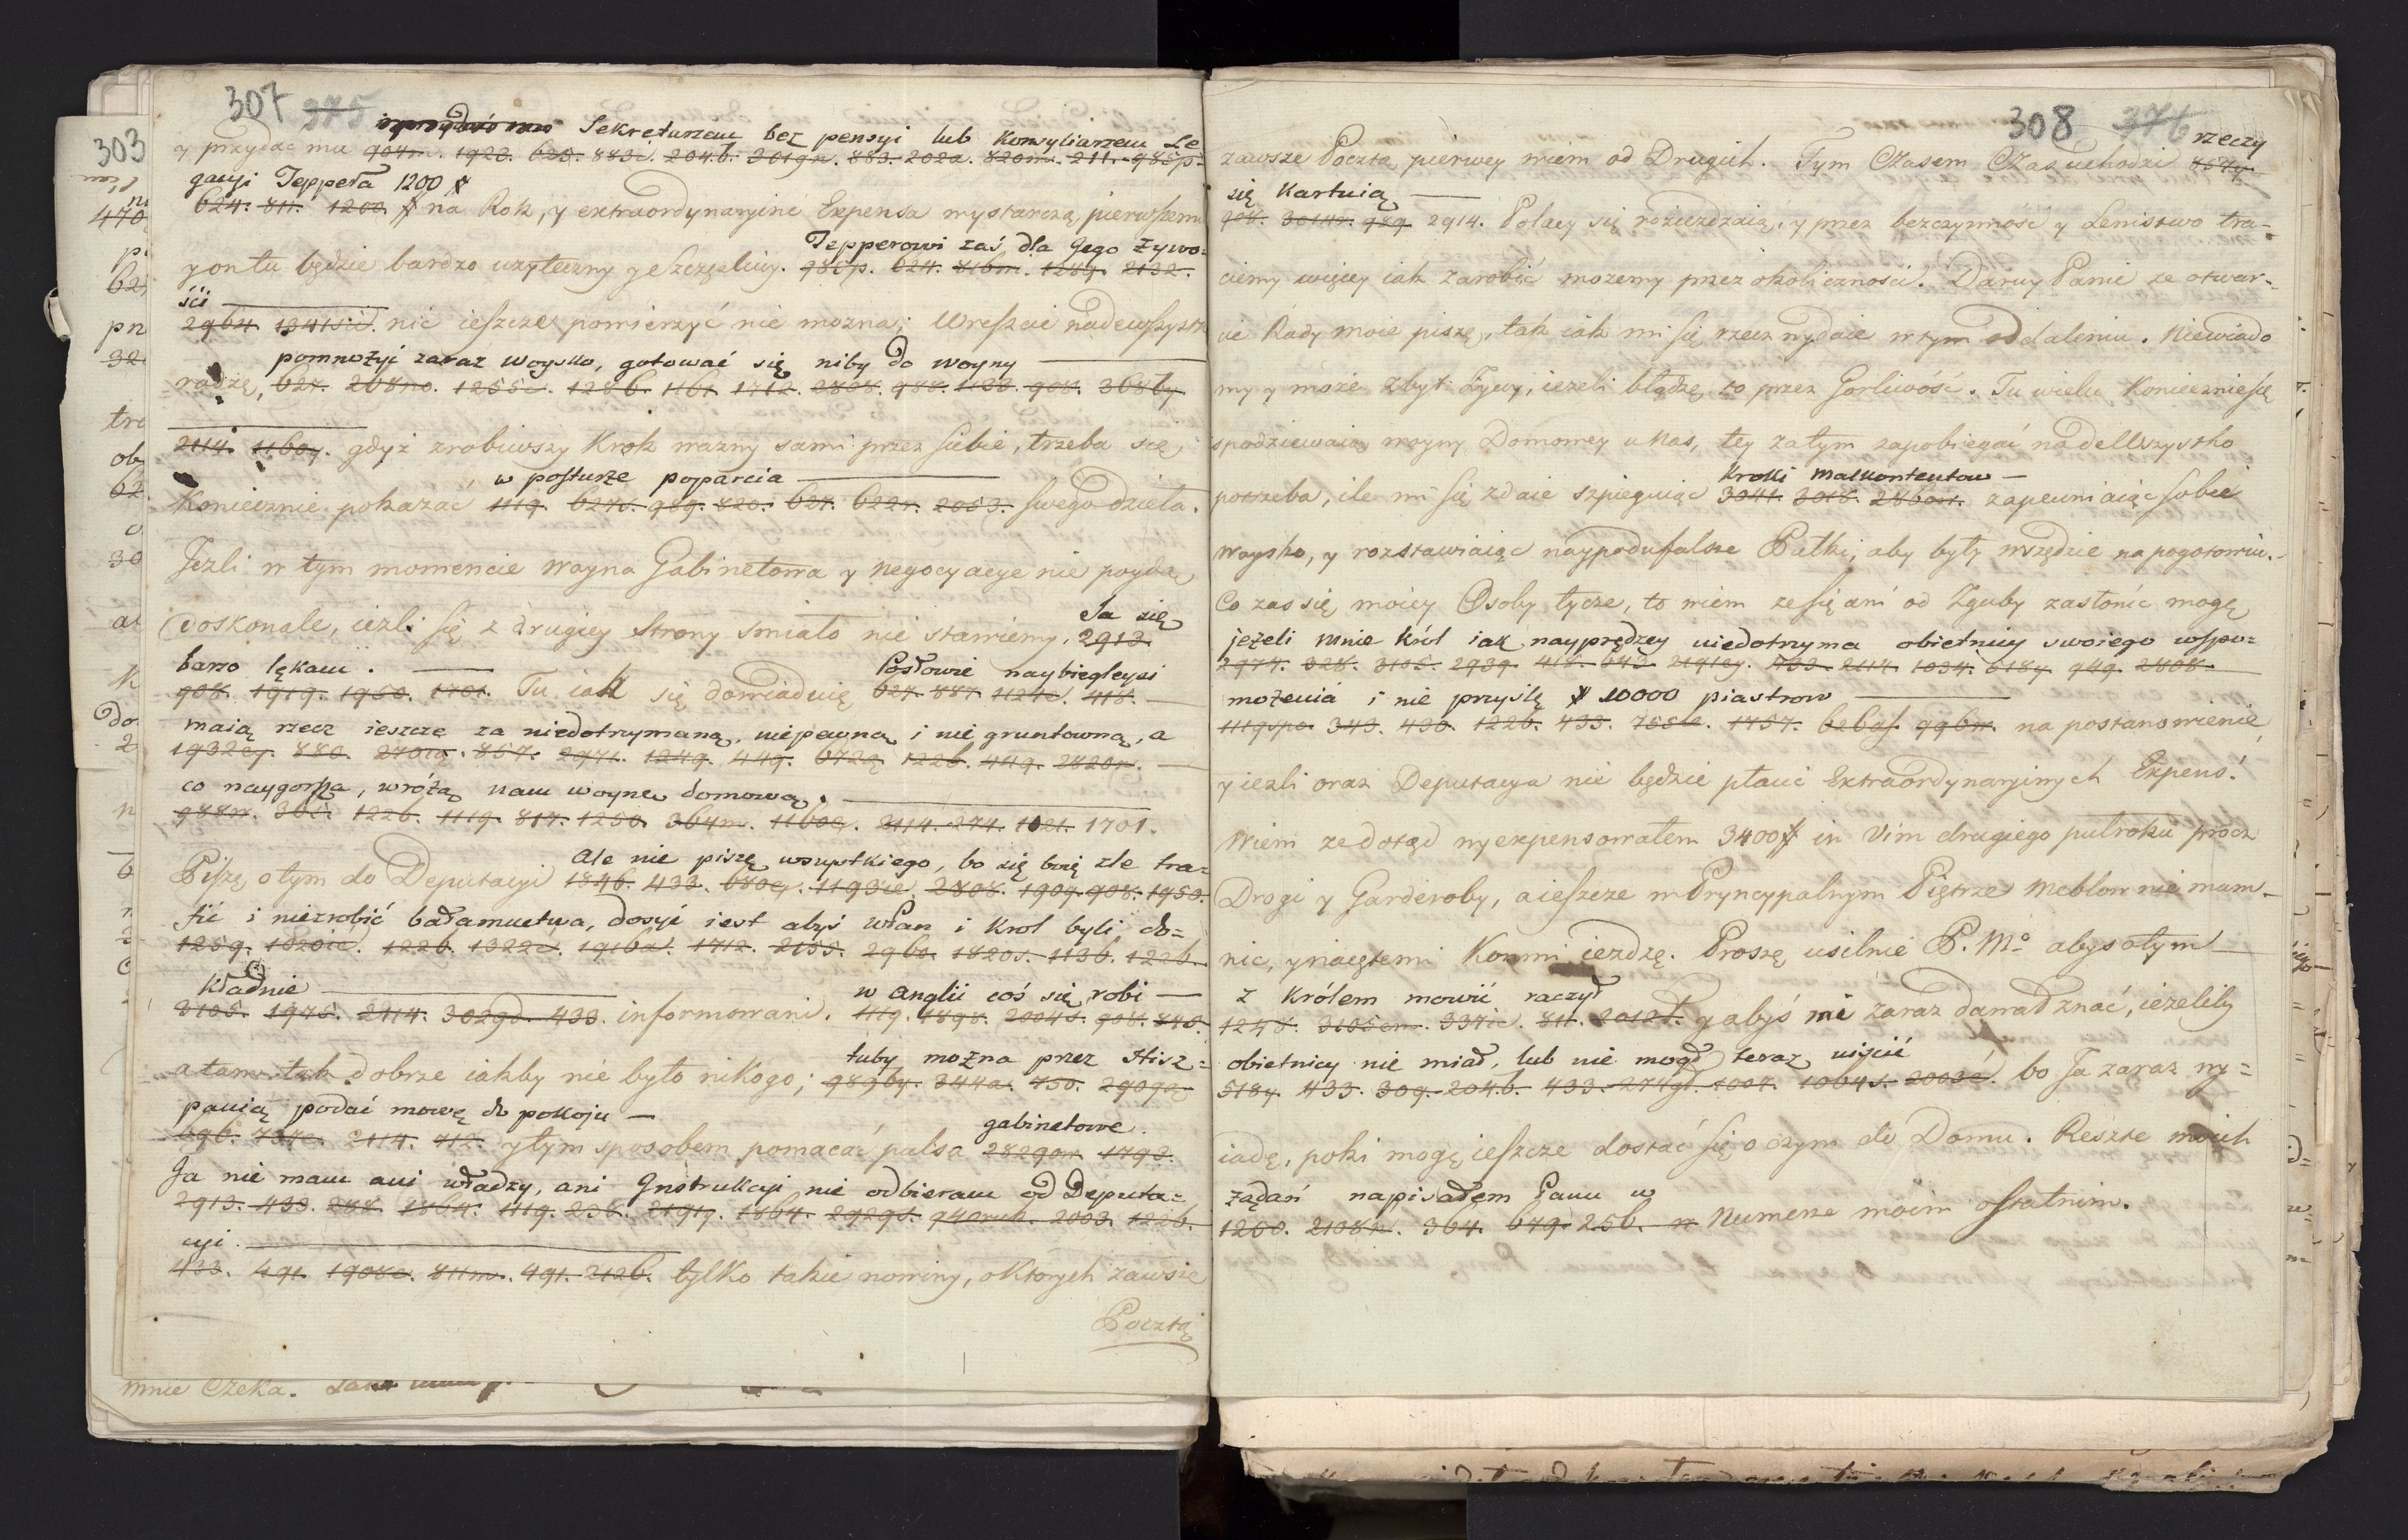 307 375
Sekretarzem bez pensyi lub Konsyliarzem Le
y przydać mu 904m. 1923. 623. 883i. 204.b. 3019n. 883. 202a. 820m. 211. 985p.
gacyi Teppera 1200 #
624. 811. 1200 # na Rok, y extraordynaryine Expensa wystarczą, pierwszem
Tepperowi zaś dla Jego żywo=
y on tu będzie bardzo użyteczny y Szczęśliwy. 985p. 624. 816m. 1289. 2132.
ści
2964. 1341sci. nic ieszcze powierzyć nie mozna; Wreszcie nadewszystk
pomnożyć zaraz woysko, gotować się niby do woyny
radzę, 627. 208no. 1255c. 1286. 1161 1712. 2808. 988. 1130. 908. 3686y
2114. 1160y. gdyż zrobiwszy Krok wazny sami przez siebie, trzeba się
w posturze poparcia
Koniecznie pokazać 1119. 627s. 989. 820. 627. 622r. 2053. swego dzieła.
Jezli w tym momencie woyna Gabinetowa y negocyacye nie poydą
Ja się
doskonale, iezli się z drugiey Strony smiało nie stawiemy, 2913
barzo lękam.
908. 1919. 1950. 1701. Tu iak się dowiaduię 627. 887. 1124c. 418.
Posłowie naybiegleysi
maią rzecz ieszcze za niedotrzymaną, niepewną i nie gruntowną, a
1932cy. 880. 270ią. 857. 2971. 1249. 449. 672ą 1226. 449. 2820n.
co naygorsza, wróżą nam woynę domową.
988n. 305. 1226. 1119. 817. 1250. 364m. 1160ę. 2114. 274. 1021. 1701.
Ale nie piszę wszystkiego, bo się boię źle tra=
Piszę o tym do Deputacyi 1846. 433. 680ę. 1193ie. 2808. 1909. 908. 1950.
fić i niezrobić bałamuctwa, dosyć iest abyś WPan i Krol byli do=
1259. 1020ic. 1226. 1322c. 1916a. 1712. 2155. 296s. 1820s. 1136. 1226.
kładnie
3105. 1975. 2114. 3029d. 433. informowani. 1119. 1898. 2004s. 908. 840.
w Anglii coś się robi
a tam tak dobrze iakby nie było nikogo; 9896y. 344a. 450. 2909a
tuby można przez Hisz=
panią podać mowę do pokoju
696. 737c. 2114. 712. y tym sposobem pomacać pulsa 2829ow 1790.
gabinetowe.
Ja nie mam ani władzy, ani Jnstrukcyi nie odbieram od Deputa=
2913. 433. 288. 1864. 1119. 238. 2191y. 1864. 2929s. 940ruk. 2003. 1226.
cyi.
433. 491. 1908a. 811m. 491. 2126. tylko takie nowiny, o ktorych zawsze
Pocztą
mnie Czeka.
308 376
rzeczy
zawsze Pocztą pierwey wiem od Drugich. Tym Czasem Czas uchodzi 857y.
się Kartuią
908. 3014r. 989 2914. Polacy się rozieżdzaią, y przez bezczynność y Lenistwo tra=
ciemy więcey iak zarobić możemy przez okoliczności. Daruy Panie ze otwar=
cie Rady moie piszę, tak iak mi się rzecz wydaie w tym oddaleniu. Niewiado
my y może zbyt Żywy, iezeli błądzę, to przez Gorliwość. Tu wielu Koniecznie się
spodziewaią woyny Domowey u Nas, tey zatym zapobiegać nadeWszystko
kroki malkontentow
potrzeba, ile mi się zdaie szpieguiąc 3041. 3018. 2860nt. zapewniaiąc sobie
Woysko, y rozstawiaiąc naypodufalsze Pułki, aby były wszędzie na pogotowiu.
Co zas się moiey Osoby tycze, to wiem ze się ani od Zguby zasłonić mogę
jeżeli mnie król iak nayprędzey niedotrzyma obietnicy swoiego wspo=
2974. 328. 3105. 2939. 418. 643. 2191cy. 433. 2114. 1034. 518y. 949. 2808.
możenia i nie przyśle # 10000 piastrow
1119spo. 343. 430. 1226. 433. 755le. 1457. 626aj. 996w. na postanowienie,
y iezli oraz Deputacya nie będzie płacić Extraordynaryinych Expens!
Wiem ze dotąd wyexpensowałem 3400 # in Vim drugiego pułroku procz
Drogi y Garderoby, a ieszcze w Pryncypalnym Piętrze Meblow nie mam
nic, y naiętemi Konmi iezdzę. Proszę usilnie P. Mo abys o tym
z Królem mowić raczył
1248. 3105em. 337ić. 811. 2012ł. y abyś mi zaraz dawał znać, iezeliby
obietnicy nie miał, lub nie mogł teraz uiścić
518y. 433. 309. 204.b. 433. 274gł. 1007. 1064s. 2003ć. bo Ja zaraz wy=
iadę, poki mogę ieszcze dostać się o czym do Domu. Resztę moich
żądań napisałem Panu w
1260. 2108n. 364. 649. 256. w Numerze moim ostatnim.